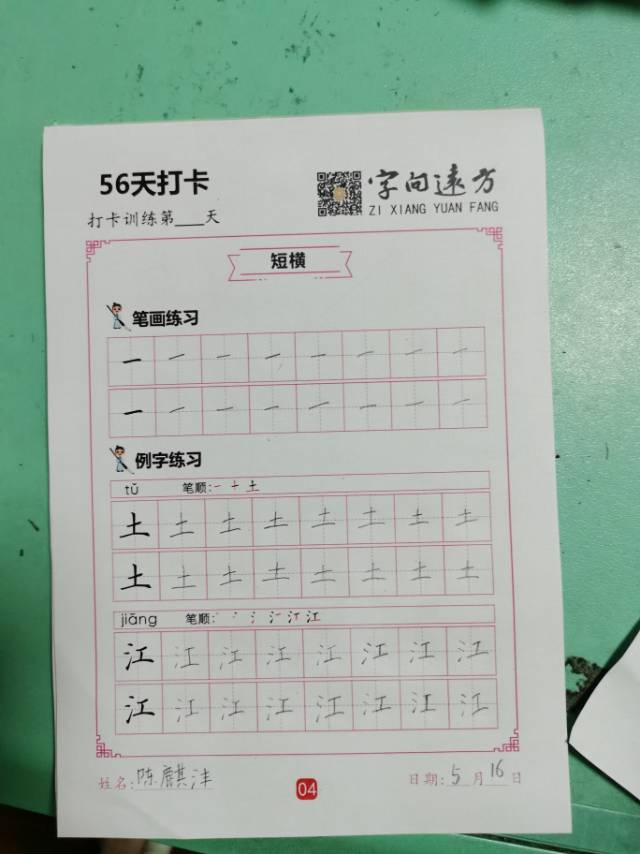 56天打卡
字向远方
ZI XIANG YUAN FANG
打卡训练第___天
短横
笔画练习
一 一 一 一 一 一 一 一
一 一 一 一 一 一 一 一
例字练习
tǔ 笔顺: 一 十 土
土 土 土 土 土 土 土 土
土 土 土 土 土 土 土 土
jiāng 笔顺: 丶 冫 氵 氵一 汀 江
江 江 江 江 江 江 江 江
江 江 江 江 江 江 江 江
姓名: 陈麒沣 04 日期: 5 月 16 日